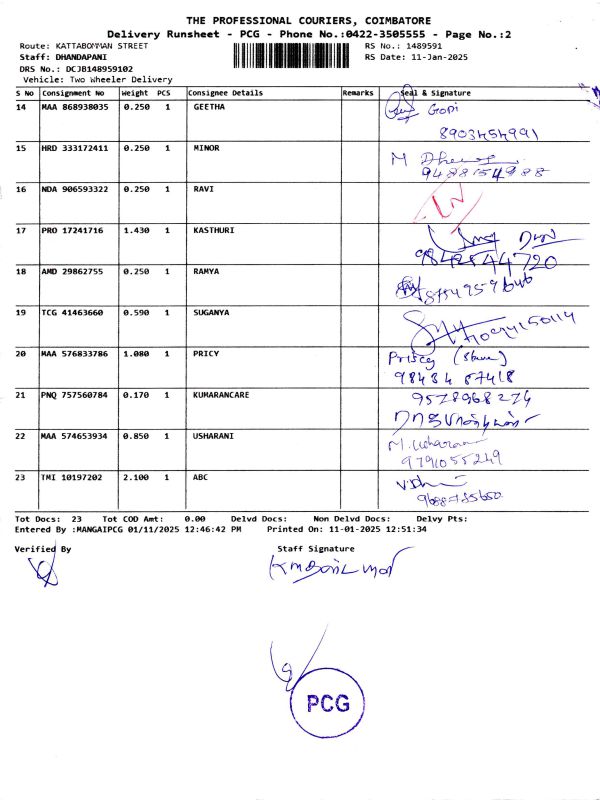 THE PROFESSIONAL COURIERS, COIMBATORE
Delivery Runsheet - PCG - Phone No.:0422-3505555 - Page No.:2
Route: KATTABOMMAN STREET RS No.: 1489591
Staff: DHANDAPANI RS Date: 11-Jan-2025
DRS No.: DCJB148959102
Vehicle: Two Wheeler Delivery
S No Consignment No Weight PCS Consignee Details Remarks Seal & Signature
14 MAA 868938035 0.250 1 GEETHA Gopi
8903454991
15 HRD 333172411 0.250 1 MINOR M
9488154988
16 NDA 906593322 0.250 1 RAVI
17 PRO 17241716 1.430 1 KASTHURI
9842544720
18 AMD 29862755 0.250 1 RAMYA
19 TCG 41463660 0.590 1 SUGANYA
20 MAA 576833786 1.080 1 PRICY Priscy
98434 87418
21 PNQ 757560784 0.170 1 KUMARANCARE 9578968274
22 MAA 574653934 0.850 1 USHARANI M. Usharani
9791055249
23 TMI 10197202 2.100 1 ABC
9688785650
Tot Docs: 23 Tot COD Amt: 0.00 Delvd Docs: Non Delvd Docs: Delvy Pts:
Entered By :MANGAIPCG 01/11/2025 12:46:42 PM Printed On: 11-01-2025 12:51:34
Verified By Staff Signature
PCG